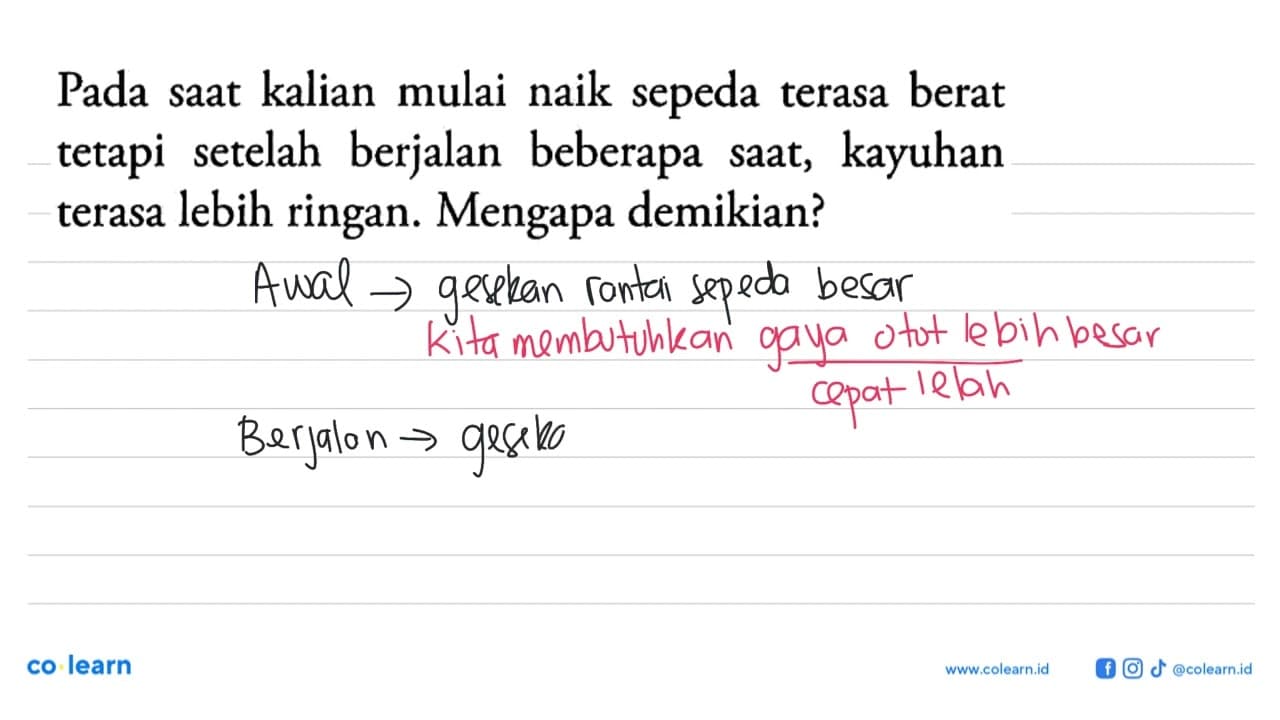 Pada saat kalian mulai naik sepeda terasa berat
tetapi setelah berjalan beberapa saat, kayuhan
terasa lebih ringan. Mengapa demikian?
Awal → gesekan rantai sepeda besar
Kita membutuhkan gaya otot lebih besar
cepat lelah
Berjalan → geseka
co learn
www.colearn.id @colearn.id